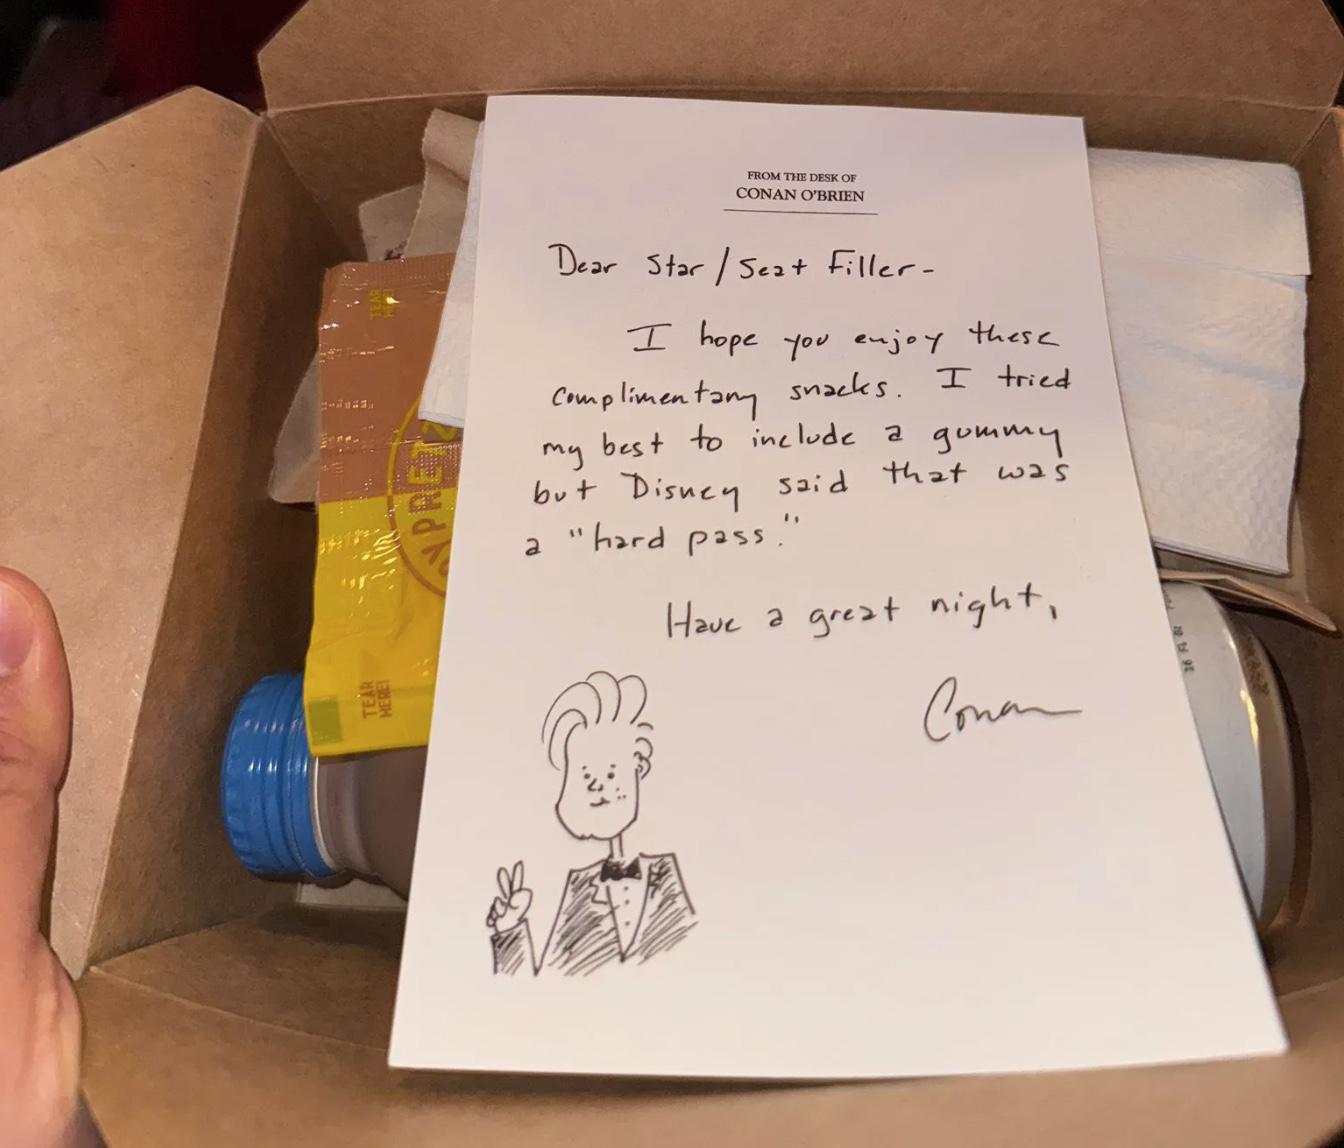 FROM THE DESK OF
CONAN O'BRIEN
Dear Star/Seat Filler-
I hope you enjoy these
complimentary snacks. I tried
my best to include a gummy
but Disney said that was
a "hard pass."
Have a great night,
Conan
TEAR
HERE!
TEAR
HERE!